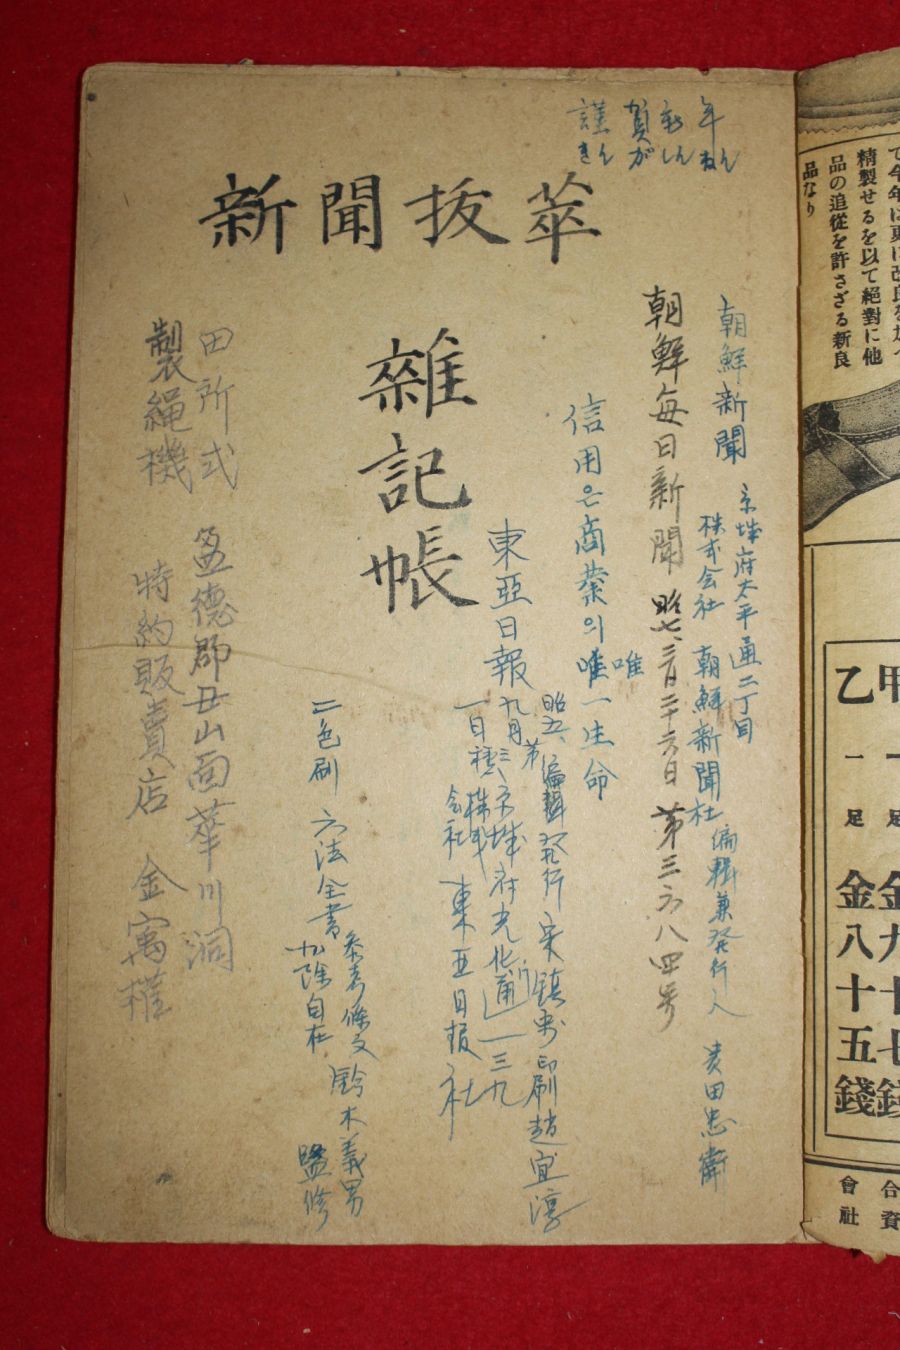 謹賀新年
きんがしんねん
新聞抜萃
雜記帳
朝鮮新聞 京城府太平通二丁目
株式会社 朝鮮新聞社 偏輯兼発行人
朝鮮每日新聞 昭七、三月二十六日 第三六八四号
信用은商業의唯一生命
唯
東亞日報
昭五、
九月三、
第
一日
偏輯発行 宋鎮禹 印刷 趙宜淳
京城府光化門通一三九
株式会社 東亜日報社
二色刷 六法全書
参考條文
加除自在
鈴木義男
監修
田所式
製繩機
盈德郡丑山面華川洞
特約販賣店 金寓權
て今年は更に改良を加へ
精製せるを以て絕對に他
品の追從を許さざる新良
品なり
甲 一足 金九十七錢
乙 一足 金八十五錢
合資
會社